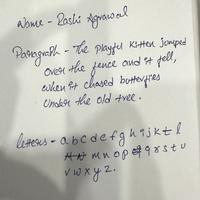 Name - Rashi Agrawal
Paragraph - The playful kitten jumped
over the fence and it fell,
when it chased butterflies
Under the old tree.
letters - a b c d e f g h i j k t l
m n o p q r s t u
v w x y z.